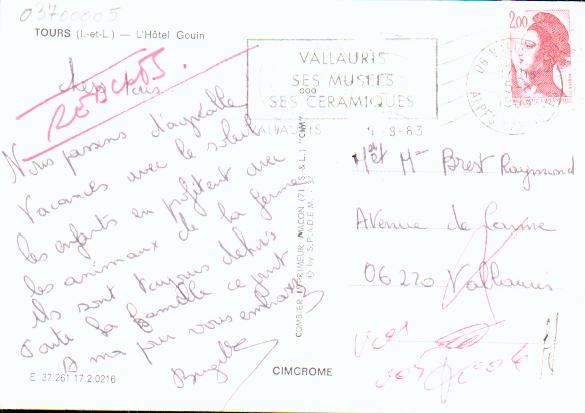 03700005
TOURS (I.-et-L.) — L'Hôtel Gouin
chers tous
REBCHOS.
Nous passons d'agréable
vacances avec le soleil
les enfants en profitent avec
les animaux de la ferme
ils sont toujours dehors
toute la famille ce joint
A ma pour vous embrasser
E 37.261 17.2.0216
COMBIER IMPRIMEUR MACON (71) (S.-&-L.) "CIM"
© by S.P.A.D.E.M. - 37
CIMCROME
2,00
VALLAURIS
SES MUSÉES
SES CERAMIQUES
VALLAURIS
9-8-83
06 VALLAURIS
ALPES
Mr et Mme Brest Raymond
Avenue de
06220 Vallauris